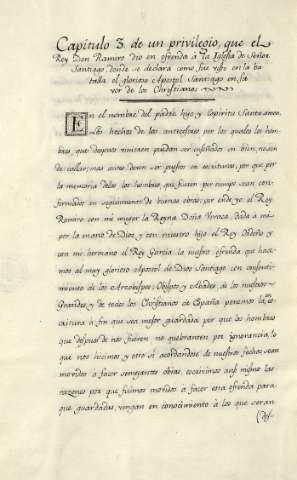 Capitulo 3. de un privilegio, que el
Rey Don Ramiro dio en ofrenda á la Iglesia de Señor
Santiago donde se declara como fue visto en la ba
talla el glorioso Apostol Santiago en fa
vor de los Christianos
En el nombre del padre hijo y Espiritu Santo amen.
Los hechos de los antecesores por los quales los hom
bres, que despues vinieren puedan ser enseñados en bien, no son
de callar; mas antes deven ser puestos en escrituras, por que por
la memoria dellos los hombres, que fueren por tiempo sean con
firmados en seguimiento de buenas obras: por ende yo el Rey
Ramiro con mi muger la Reyna Doña Urraca dada a mi
por la mano de Dios y con nuestro hijo el Rey Ordoño y
con mi hermano el Rey Garcia la nuestra ofrenda que hace
mos al muy glorioso Apostol de Dios Santiago con consenti
miento de los Arzobispos, Obispos y Abades, de los nuestros
Grandes y de todos los Christianos de España ponemos la es
critura á fin que sea mejor guardada por que los hombres
que despues de nos fueren no quebranten por ignorancia, lo
que nos hicimos y otro si acordandose de nuestros fechos sean
movidos a facer semejantes obras, escrivimos aqui mismo las
razones por que fuimos movidos a facer esta ofrenda para
que guardadas, vengan en conocimiento á los que seran